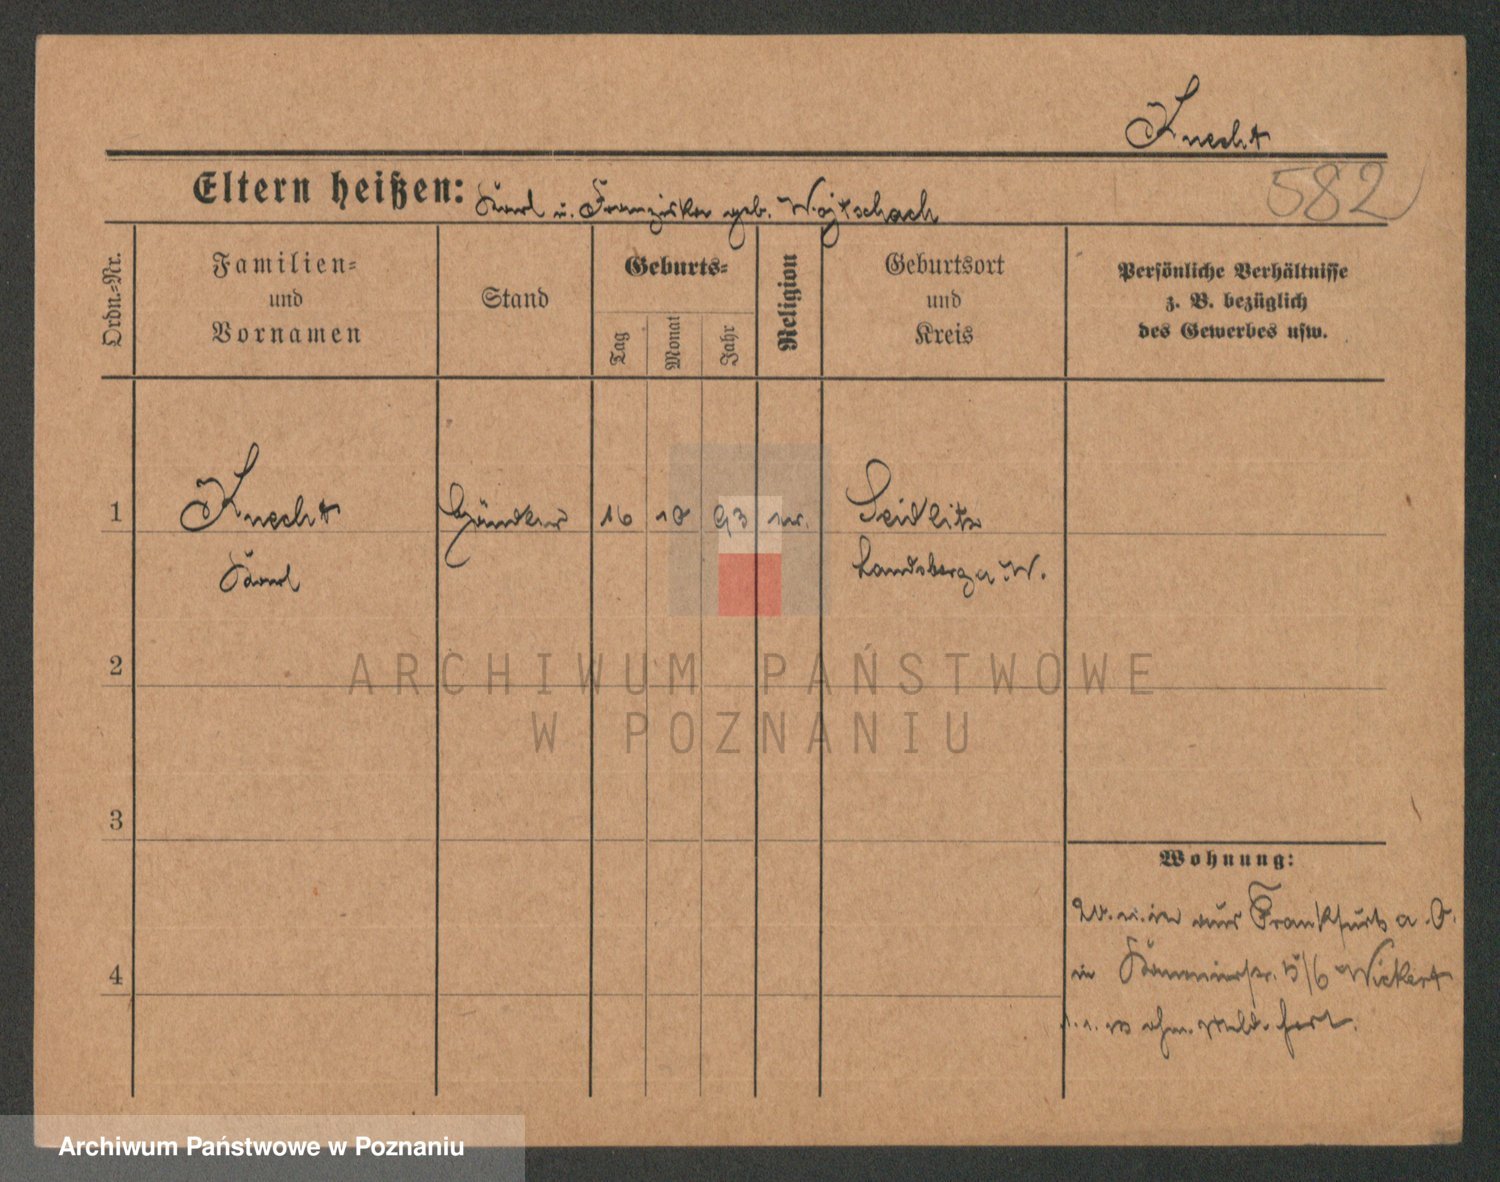 Knecht
Eltern heißen: Karl u. Franziska geb. Wojtschach
582
Ordn.-Nr.
Familien-
und
Vornamen
Stand
Geburts-
Tag
Monat
Jahr
Religion
Geburtsort
und
Kreis
Persönliche Verhältnisse
z. B. bezüglich
des Gewerbes usw.
1
Knecht
Karl
Händler
16
10
93
Seidlitz
Landsberg a W.
2
ARCHIWUM PAŃSTWOWE
W POZNANIU
3
Wohnung:
aus Frankfurt a. O.
in 5/6 Wickert
4
fort.
Archiwum Państwowe w Poznaniu